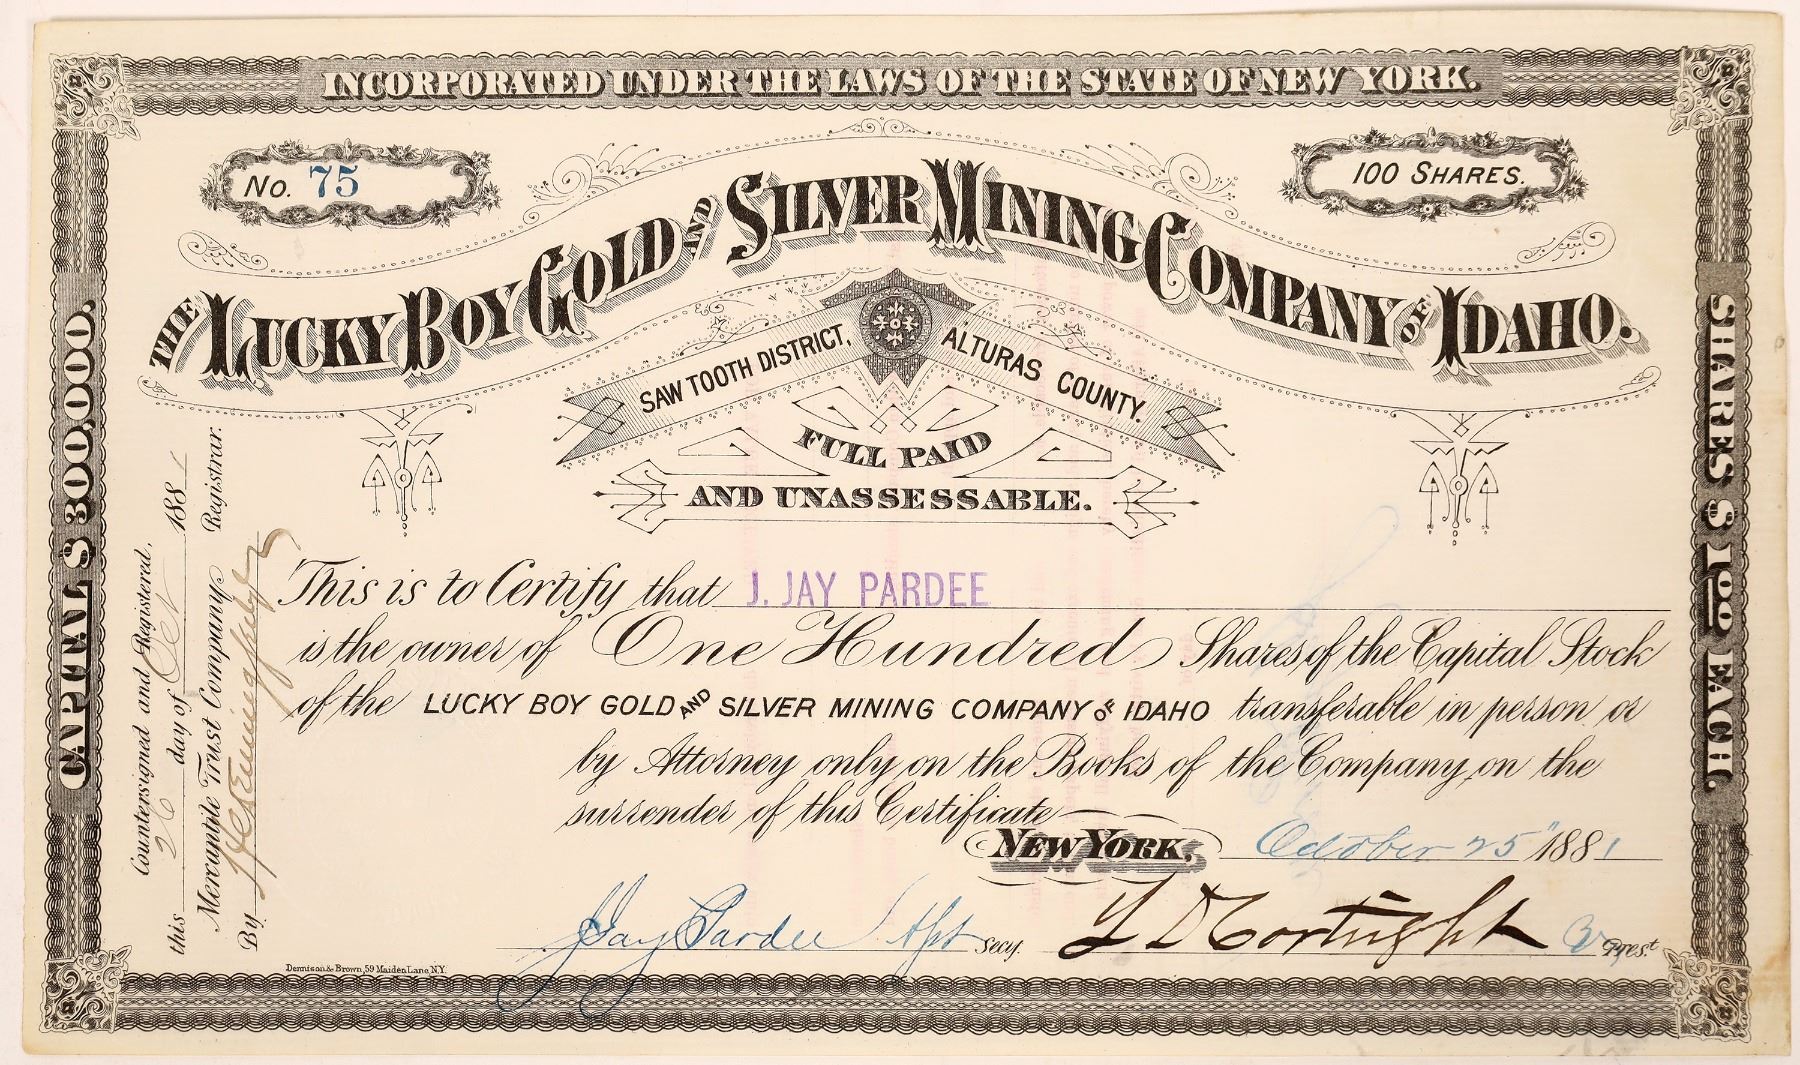 INCORPORATED UNDER THE LAWS OF THE STATE OF NEW YORK.
No. 75
100 SHARES.
THE LUCKY BOY GOLD AND SILVER MINING COMPANY OF IDAHO.
SAW TOOTH DISTRICT, ALTURAS COUNTY.
FULL PAID
AND UNASSESSABLE.
CAPITAL $300,000.
SHARES $1.00 EACH.
Countersigned and Registered,
this 26 day of Oct 1881
Mercantile Trust Company Registrar.
By
This is to Certify that J. JAY PARDEE
is the owner of One Hundred Shares of the Capital Stock
of the LUCKY BOY GOLD AND SILVER MINING COMPANY OF IDAHO transferable in person or
by Attorney only on the Books of the Company, on the
surrender of this Certificate
NEW YORK, October 25" 1881
J Jay Pardee Asst Secy. Cortright Prest.
Dennison & Brown, 59 Maiden Lane N.Y.